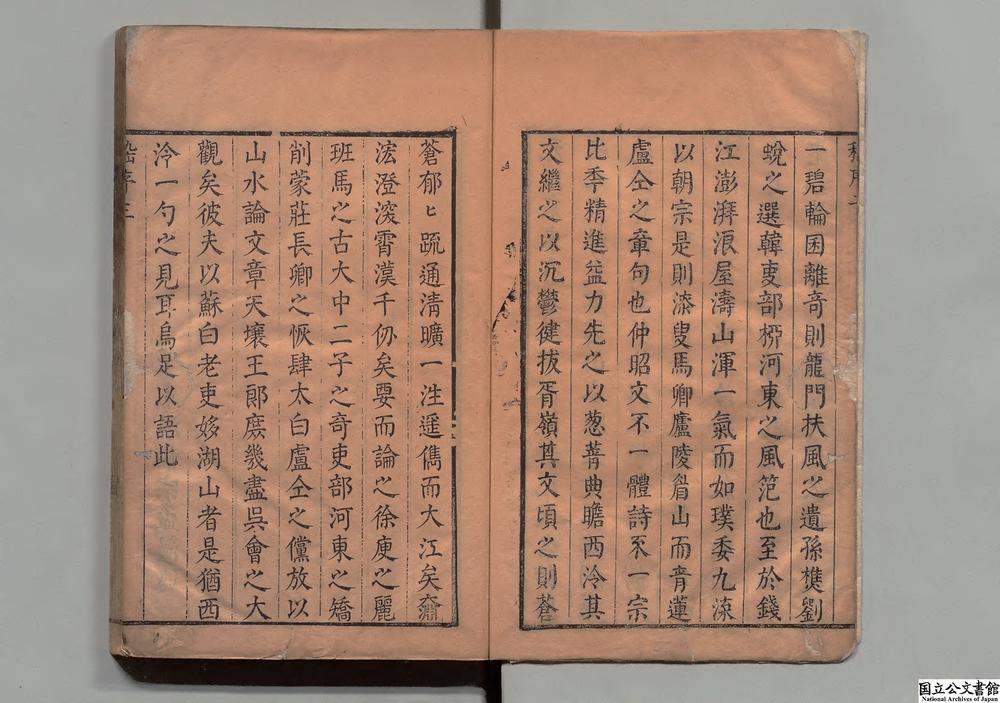 一碧輪困離奇則龍門扶風之遺孫樵劉
蛻之選韓吏部栁河東之風範也至於錢
江澎湃浪屋濤山渾一氣而如璞委九淙
以朝宗是則漆叟馬卿廬陵眉山而青蓮
盧仝之章句也仲昭文不一體詩不一宗
比季精進益力先之以葱蒨典瞻西泠其
文繼之以沉鬱健拔胥嶺其文頃之則蒼
蒼郁ヒ疏通清曠一泩遥雋而大江矣齋
浤澄深霄漠千仞矣要而論之徐庾之麗
班馬之古大中二子之奇吏部河東之矯
削蒙莊長卿之恢肆太白盧仝之儻放以
山水論文章天壤王郎庶幾盡吳會之大
觀矣彼夫以蘇白老吏姼湖山者是猶西
泠一勺之見耳烏足以語此
序三
国立公文書館
National Archives of Japan